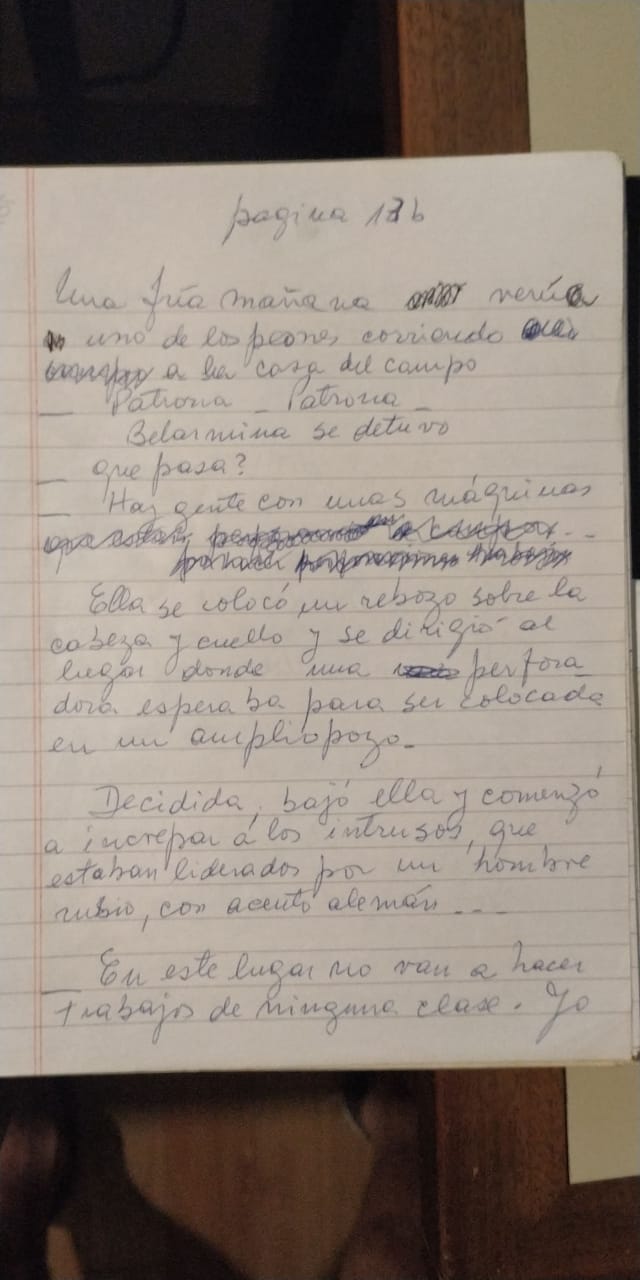 pagina 17b
Una fría mañana venía
uno de los peones corriendo
a la casa del campo
— Patrona - Patrona -
Belarmina se detuvo
— que pasa?
— Hay gente con unas máquinas
Ella se colocó un rebozo sobre la
cabeza y cuello y se dirigió al
lugar donde una perfora
dora esperaba para ser colocada
en un ampliopozo.
Decidida, bajó ella y comenzó
a increpar a los intrusos, que
estaban liderados por un hombre
rubio, con acento alemán ---
— En este lugar no van a hacer
trabajos de ninguna clase. Yo